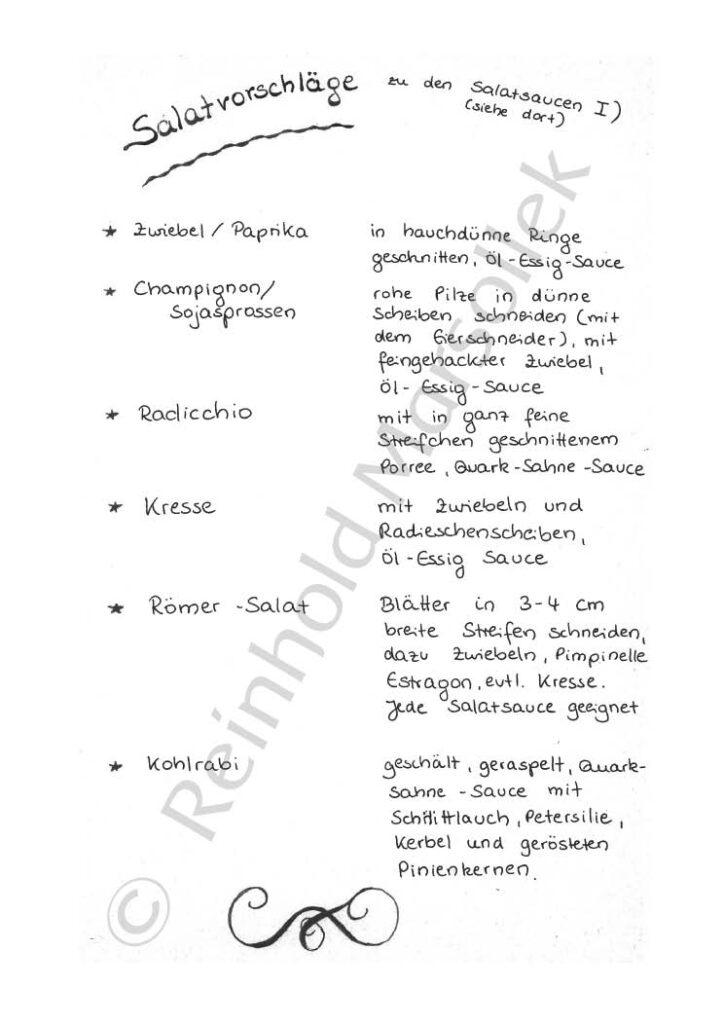 Salatvorschläge zu den Salatsaucen I)
(siehe dort)
* Zwiebel / Paprika in hauchdünne Ringe
geschnitten, Öl-Essig-Sauce
* Champignon/ rohe Pilze in dünne
Sojasprossen Scheiben schneiden (mit
dem Eierschneider), mit
feingehackter Zwiebel,
Öl- Essig-Sauce
* Radicchio mit in ganz feine
Streifchen geschnittenem
Porree, Quark-Sahne-Sauce
* Kresse mit Zwiebeln und
Radieschenscheiben,
Öl-Essig Sauce
* Römer-Salat Blätter in 3-4 cm
breite Streifen schneiden,
dazu Zwiebeln, Pimpinelle
Estragon, evtl. Kresse.
Jede Salatsauce geeignet
* Kohlrabi geschält, geraspelt, Quark-
sahne-Sauce mit
Schnittlauch, Petersilie,
Kerbel und gerösteten
Pinienkernen.
© Reinhold Marsollek